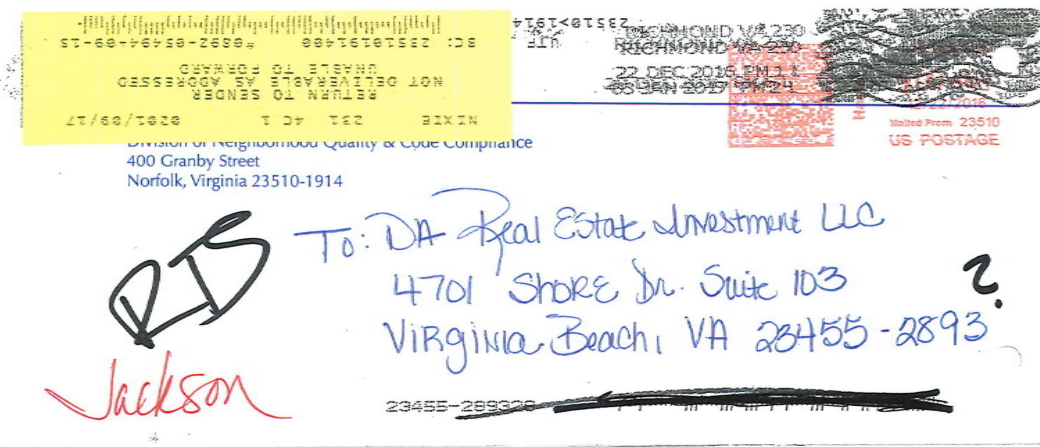 NIXIE 231 4C 1 0201/09/17
RETURN TO SENDER
NOT DELIVERABLE AS ADDRESSED
UNABLE TO FORWARD
BC: 23510191400 *0892-05494-09-15
23510>1914
UTF
RICHMOND VA 230
RICHMOND VA 230
22 DEC 2016 PM 1 L
03 JAN 2017 PM 24 L
12/22/2016
Mailed From 23510
US POSTAGE
Division of Neighborhood Quality & Code Compliance
400 Granby Street
Norfolk, Virginia 23510-1914
RTS
To: DA Real Estate Investment LLC
4701 Shore Dr. Suite 103
Virginia Beach, VA 23455-2893
?
Jackson
23455-289328